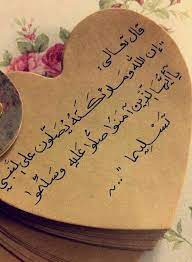 قال تعالى:
"إن الله وملائكته يصلون على النبي
يا أيها الذين آمنوا صلوا عليه وسلموا
تسليما" ~..